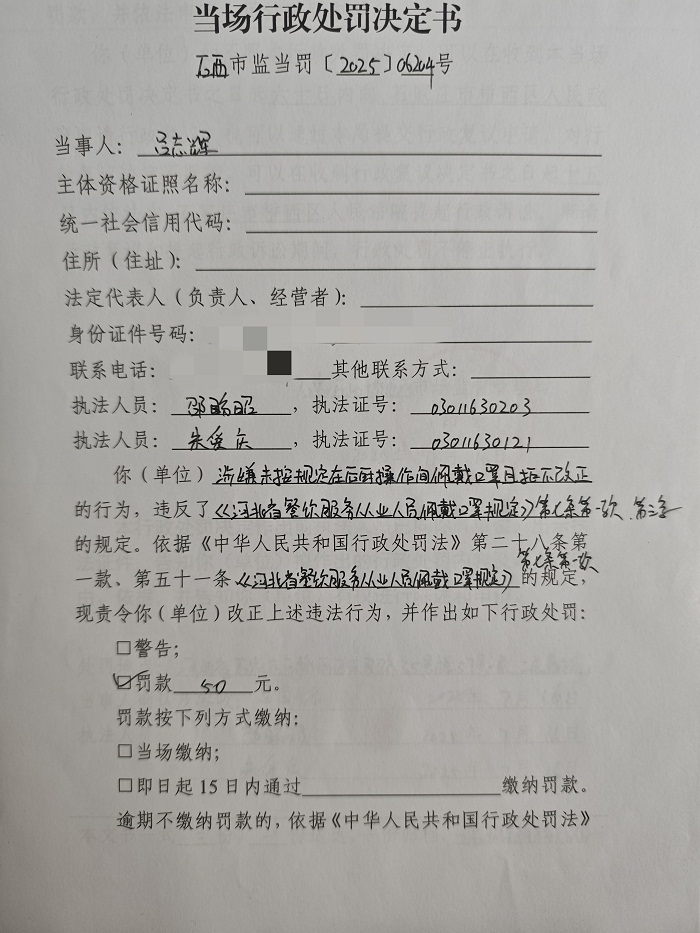 当场行政处罚决定书
石西市监当罚〔2025〕06204号
当事人：吕志辉
主体资格证照名称：
统一社会信用代码：
住所（住址）：
法定代表人（负责人、经营者）：
身份证件号码：
联系电话： 其他联系方式：
执法人员： ，执法证号：03011630203
执法人员：朱爱庆，执法证号：03011630121
你（单位）涉嫌未按规定在后厨操作间佩戴口罩且拒不改正
的行为，违反了《河北省餐饮服务从业人员佩戴口罩规定》第七条第一款、第三条
的规定。依据《中华人民共和国行政处罚法》第二十八条第
一款、第五十一条《河北省餐饮服务从业人员佩戴口罩规定》第七条第一款的规定，
现责令你（单位）改正上述违法行为，并作出如下行政处罚：
□警告；
☑罚款50元。
罚款按下列方式缴纳：
□当场缴纳；
□即日起15日内通过 缴纳罚款。
逾期不缴纳罚款的，依据《中华人民共和国行政处罚法》